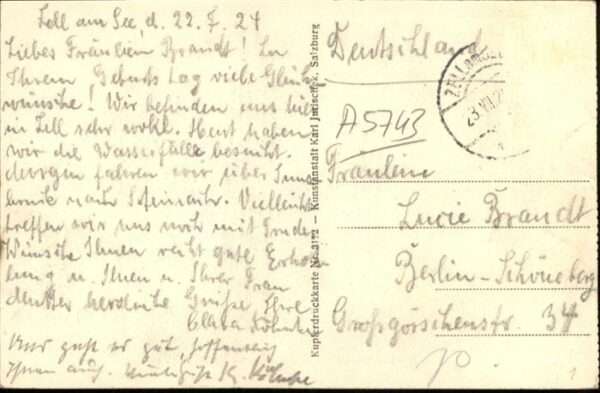 Zell am See, d. 22. 7. 24
Liebes Fräulein Brandt! Zu
Ihrem Geburtstag viele Glück-
wünsche! Wir befinden uns hier
in Zell sehr wohl. Heut haben
wir die Wasserfälle besucht.
Morgen fahren wir über Inns-
bruck nach Vielleicht
treffen wir uns noch mit
Wünsche Ihnen recht gute Erho-
lung u. Ihnen u. Ihrer Frau
Mutter herzliche Grüße, Ihre
Clara
Uns geht es gut, hoffentlich
Ihnen auch.
Kupferdruckkarte Nr. 3172 — Kunstanstalt Karl Jurischek, Salzburg
Deutschland
ZELL AM SEE
23 VII 24
A5743
Fräulein
Lucie Brandt
Berlin-Schöneberg
Großgörschenstr. 34